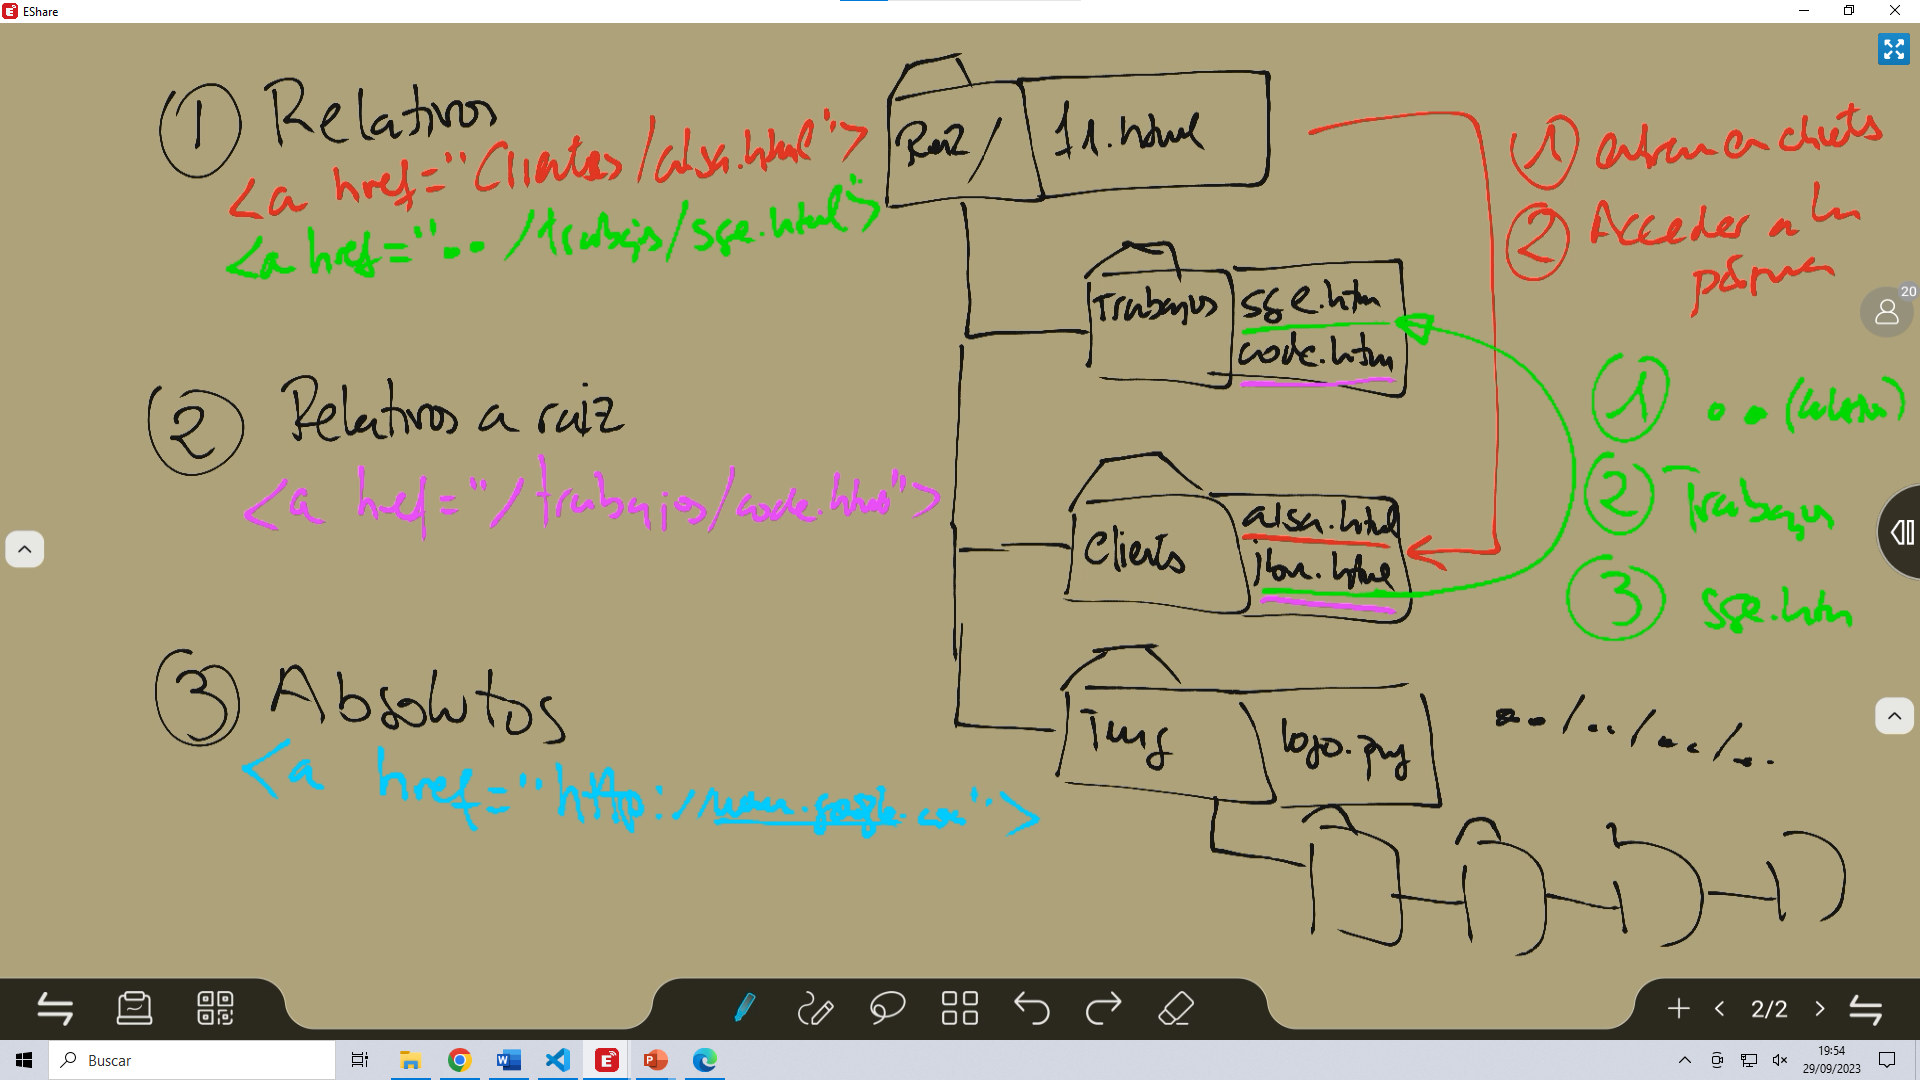 EShare
① Relativos
<a href="Clientes/alsa.html">
<a href="../trabajos/sge.html">
② Relativos a raiz
<a href="/trabajos/code.html">
③ Absolutos
<a href="http://www.google.com">
Raiz/
11.html
Trabajos
sge.htm
code.htm
Clients
alsa.html
html
Img
logo.png
①
② Acceder a la
página
20
① ..
② Trabajos
③ sge.htm
../../../..
2/2
Buscar
19:54
29/09/2023